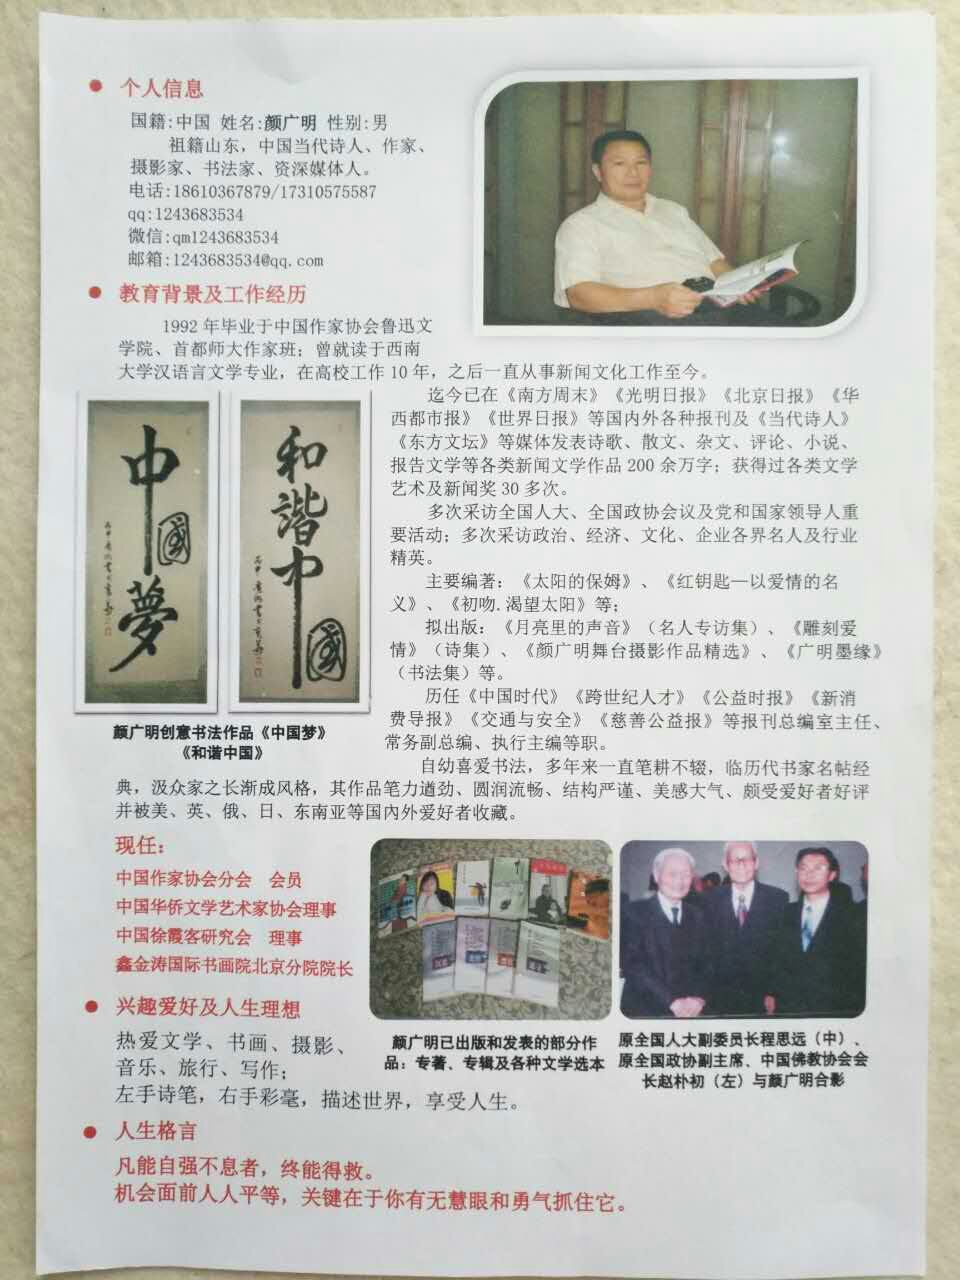 个人信息
国籍:中国 姓名:颜广明 性别:男
祖籍山东，中国当代诗人、作家、
摄影家、书法家、资深媒体人。
电话:18610367879/17310575587
qq:1243683534
微信:qm1243683534
邮箱:1243683534@qq.com
教育背景及工作经历
1992年毕业于中国作家协会鲁迅文
学院、首都师大作家班；曾就读于西南
大学汉语言文学专业，在高校工作10年，之后一直从事新闻文化工作至今。
迄今已在《南方周末》《光明日报》《北京日报》《华
西都市报》《世界日报》等国内外各种报刊及《当代诗人》
《东方文坛》等媒体发表诗歌、散文、杂文、评论、小说、
报告文学等各类新闻文学作品200余万字；获得过各类文学
艺术及新闻奖30多次。
多次采访全国人大、全国政协会议及党和国家领导人重
要活动；多次采访政治、经济、文化、企业各界名人及行业
精英。
主要编著：《太阳的保姆》、《红钥匙—以爱情的名
义》、《初吻.渴望太阳》等；
拟出版：《月亮里的声音》（名人专访集）、《雕刻爱
情》（诗集）、《颜广明舞台摄影作品精选》、《广明墨缘》
（书法集）等。
历任《中国时代》《跨世纪人才》《公益时报》《新消
费导报》《交通与安全》《慈善公益报》等报刊总编室主任、
常务副总编、执行主编等职。
自幼喜爱书法，多年来一直笔耕不辍，临历代书家名帖经
典，汲众家之长渐成风格，其作品笔力遒劲、圆润流畅、结构严谨、美感大气、颇受爱好者好评
并被美、英、俄、日、东南亚等国内外爱好者收藏。
中国夢
和谐中国
颜广明创意书法作品《中国梦》
《和谐中国》
现任：
中国作家协会分会 会员
中国华侨文学艺术家协会理事
中国徐霞客研究会 理事
鑫金涛国际书画院北京分院院长
颜广明已出版和发表的部分作
品：专著、专辑及各种文学选本
原全国人大副委员长程思远（中）、
原全国政协副主席、中国佛教协会会
长赵朴初（左）与颜广明合影
兴趣爱好及人生理想
热爱文学、书画、摄影、
音乐、旅行、写作；
左手诗笔，右手彩毫，描述世界，享受人生。
人生格言
凡能自强不息者，终能得救。
机会面前人人平等，关键在于你有无慧眼和勇气抓住它。